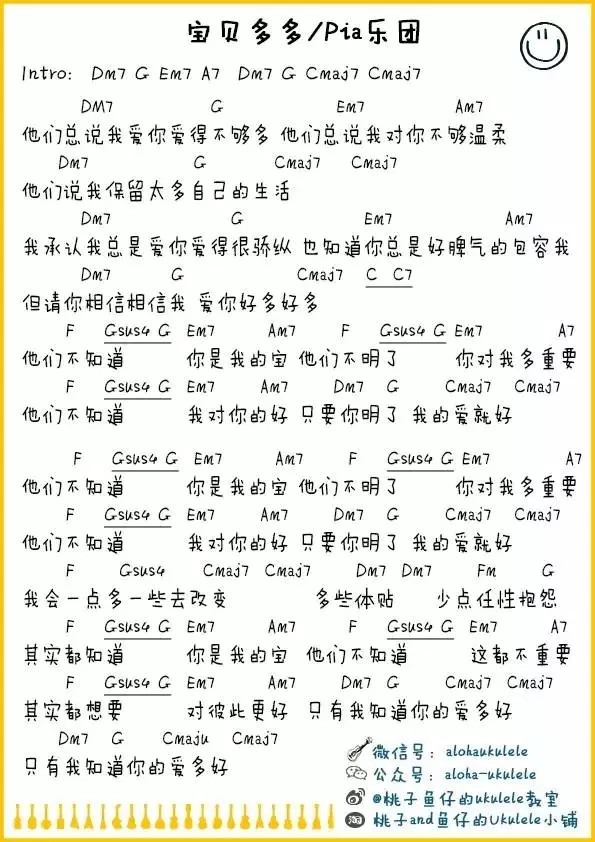 宝贝多多/Pia乐团
Intro: Dm7 G Em7 A7 Dm7 G Cmaj7 Cmaj7
DM7 G Em7 Am7
他们总说我爱你爱得不够多 他们总说我对你不够温柔
Dm7 G Cmaj7 Cmaj7
他们说我保留太多自己的生活
Dm7 G Em7 Am7
我承认我总是爱你爱得很骄纵 也知道你总是好脾气的包容我
Dm7 G Cmaj7 C C7
但请你相信相信我 爱你好多好多
F Gsus4 G Em7 Am7 F Gsus4 G Em7 A7
他们不知道 你是我的宝 他们不明了 你对我多重要
F Gsus4 G Em7 Am7 Dm7 G Cmaj7 Cmaj7
他们不知道 我对你的好 只要你明了 我的爱就好
F Gsus4 G Em7 Am7 F Gsus4 G Em7 A7
他们不知道 你是我的宝 他们不明了 你对我多重要
F Gsus4 G Em7 Am7 Dm7 G Cmaj7 Cmaj7
他们不知道 我对你的好 只要你明了 我的爱就好
F Gsus4 Cmaj7 Cmaj7 Dm7 Dm7 Fm G
我会一点多一些去改变 多些体贴 少点任性抱怨
F Gsus4 G Em7 Am7 F Gsus4 G Em7 Am7
其实都知道 你是我的宝 他们不知道 这都不重要
F Gsus4 G Em7 Am7 Dm7 G Cmaj7 Cmaj7
其实都想要 对彼此更好 只有我知道你的爱多好
Dm7 G Cmaju Cmaj7
只有我知道你的爱多好
微信号: alohaukulele
公众号: aloha-ukulele
@桃子鱼仔的ukulele教室
淘 桃子and鱼仔的Ukulele小铺